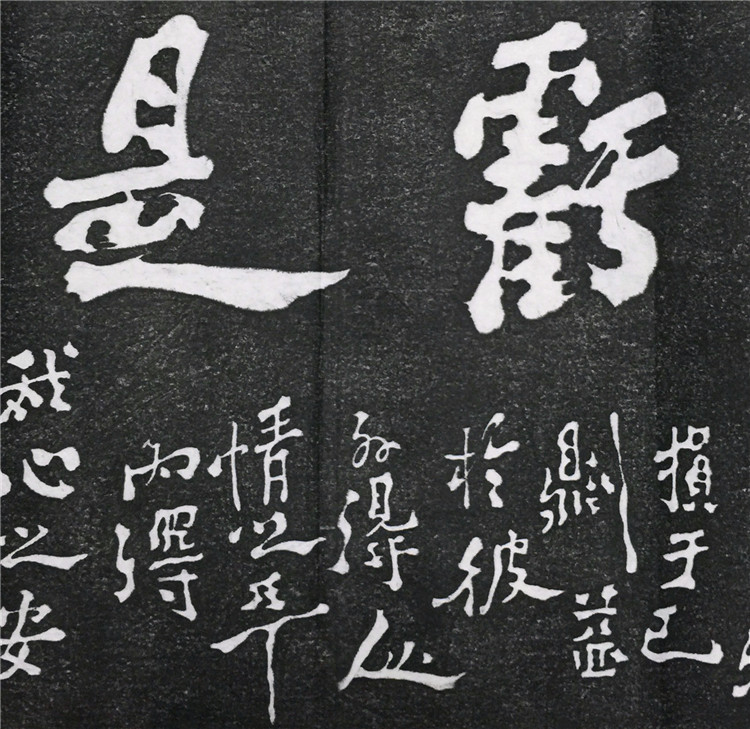 虧是
損于己
則益
於彼
外得人
情之平
內得
我心之安